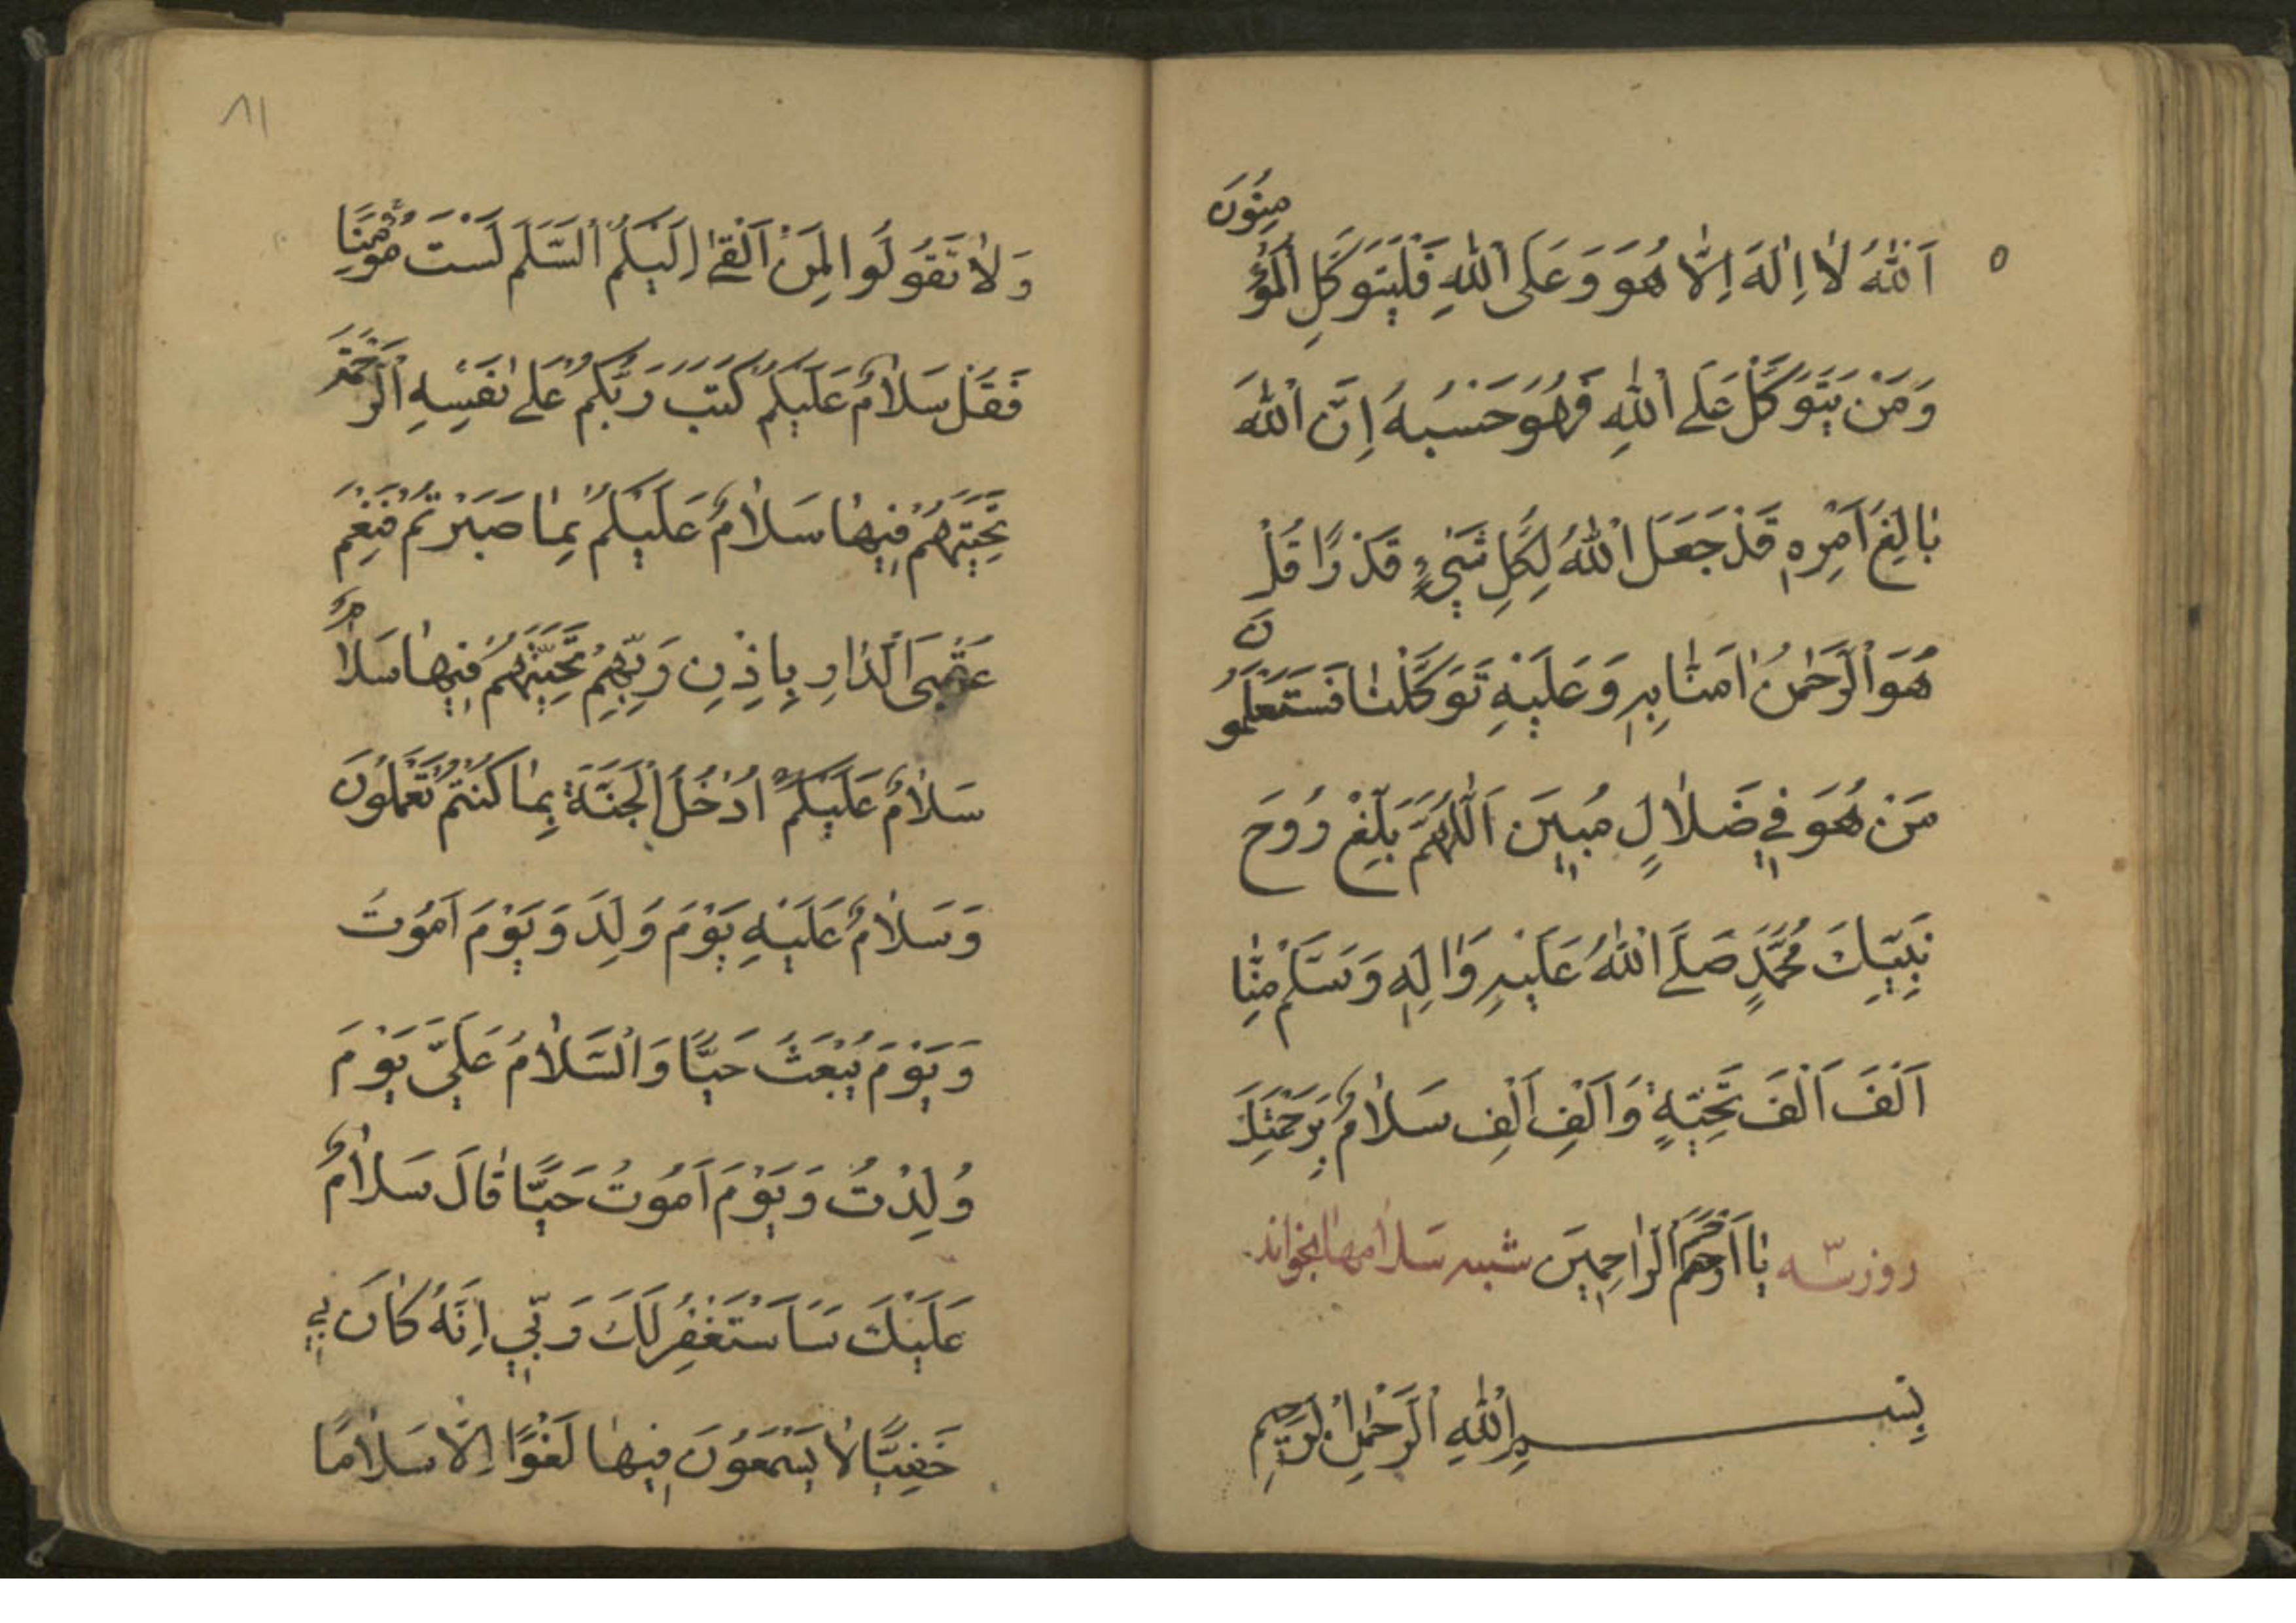 اَللّٰهُ لٰا اِلٰهَ اِلّٰا هُوَ وَعَلَی اللّٰهِ فَلْيَتَوَكَّلِ الْمُؤْمِنُونَ
وَمَنْ يَتَوَكَّلْ عَلَی اللّٰهِ فَهُوَ حَسْبُهُ اِنَّ اللّٰهَ
بٰالِغُ اَمْرِهِ قَدْ جَعَلَ اللّٰهُ لِكُلِّ شَيْءٍ قَدْرًا قُلْ
هُوَ الرَّحْمٰنُ اٰمَنّٰا بِهِ وَعَلَيْهِ تَوَكَّلْنٰا فَسَتَعْلَمُونَ
مَنْ هُوَ فِي ضَلٰالٍ مُبِين اَللّٰهُمَّ بَلِّغْ رُوحَ
نَبِيِّكَ مُحَمَّدٍ صَلَّی اللّٰهُ عَلَيْهِ وَاٰلِهِ وَسَلَّمْ مِنّٰا
اَلْفَ اَلْفَ تَحِيَّةٍ وَاَلْفِ اَلْفِ سَلٰامٌ بِرَحْمَتِكَ
يٰا اَرْحَمَ الرّٰاحِمِينَ روز سه شنبه سَلامهٰا بخواند
بِسْمِ اللّٰهِ الرَّحْمٰنِ الرَّحِيمِ
٨١
وَلٰا تَقُولُوا لِمَنْ اَلْقیٰ اِلَيْكُمُ السَّلَمَ لَسْتَ مُؤْمِنًا
فَقُلْ سَلٰامٌ عَلَيْكُمْ كَتَبَ رَبُّكُمْ عَلیٰ نَفْسِهِ الرَّحْمَةَ
تَحِيَّتُهُمْ فِيهٰا سَلٰامٌ عَلَيْكُمْ بِمٰا صَبَرْتُمْ فَنِعْمَ
عُقْبَی الدّٰارِ بِاِذْنِ رَبِّهِمْ تَحِيَّتُهُمْ فِيهٰا سَلٰامٌ
سَلٰامٌ عَلَيْكُمْ ادْخُلُ الْجَنَّةَ بِمٰا كُنْتُمْ تَعْمَلُونَ
وَسَلٰامٌ عَلَيْهِ يَوْمَ وُلِدَ وَيَوْمَ اَمُوتُ
وَيَوْمَ يُبْعَثُ حَيًّا وَالسَّلٰامُ عَلَيَّ يَوْمَ
وُلِدْتُ وَيَوْمَ اَمُوتُ حَيًّا قٰالَ سَلٰامٌ
عَلَيْكَ سَاَسْتَغْفِرُ لَكَ رَبِّي اِنَّهُ كٰانَ بِي
حَفِيًّا لٰا يَسْمَعُونَ فِيهٰا لَغْوًا اِلّٰا سَلٰامًا